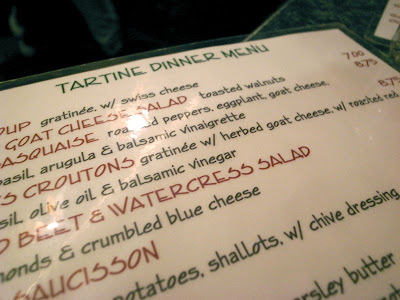 TARTINE DINNER MENU
UP gratinée. w/ swiss cheese 7.00
GOAT CHEESE SALAD toasted walnuts 8.75
BASQUAISE roasted peppers, eggplant, goat cheese,
basil, arugula & balsamic vinaigrette 8.75
S CROUTONS gratinée w/ herbed goat cheese, w/ roasted red
sil, olive oil & balsamic vinegar
D BEET & WATERCRESS SALAD
monds & crumbled blue cheese
SAUCISSON
potatoes, shallots, w/ chive dressing
parsley butter